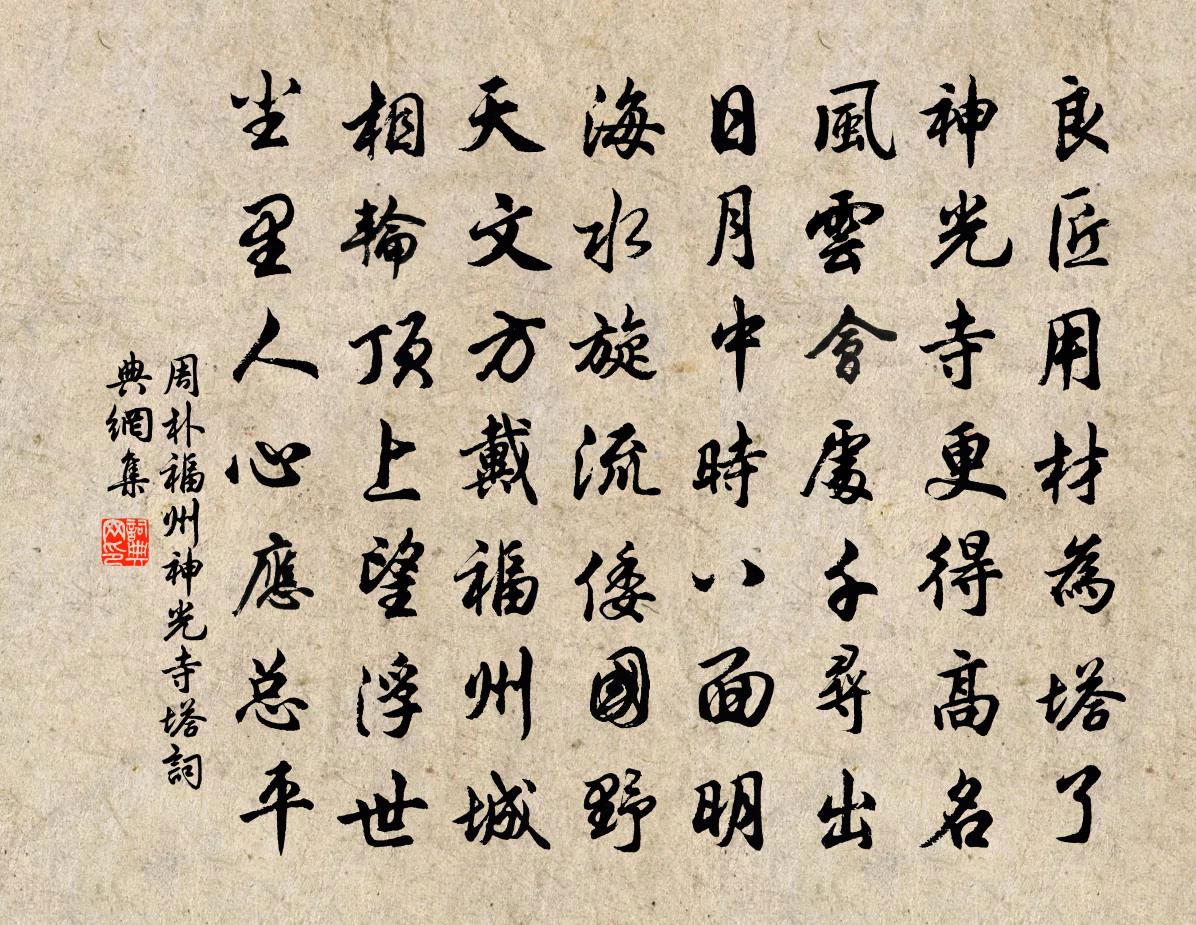 良匠用材為塔了
神光寺更得高名
風雲會處千尋出
日月中時八面明
海水旋流倭國野
天文方戴福州城
相輪頂上望浮世
尘里人心應总平
周朴福州神光寺塔詞
典網集
詞典
网印